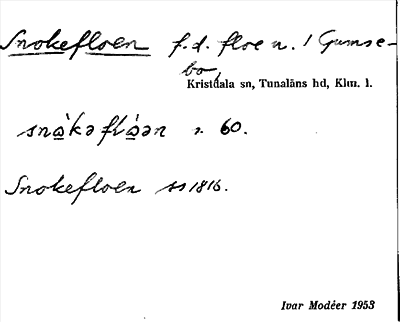 Snokefloen f.d. floe n. / Gumse-
bo,
Kristdala sn, Tunaläns hd, Klm. l.
snàkəflóən s. 60.
Snokefloen ss 1816.
Ivar Modéer 1953